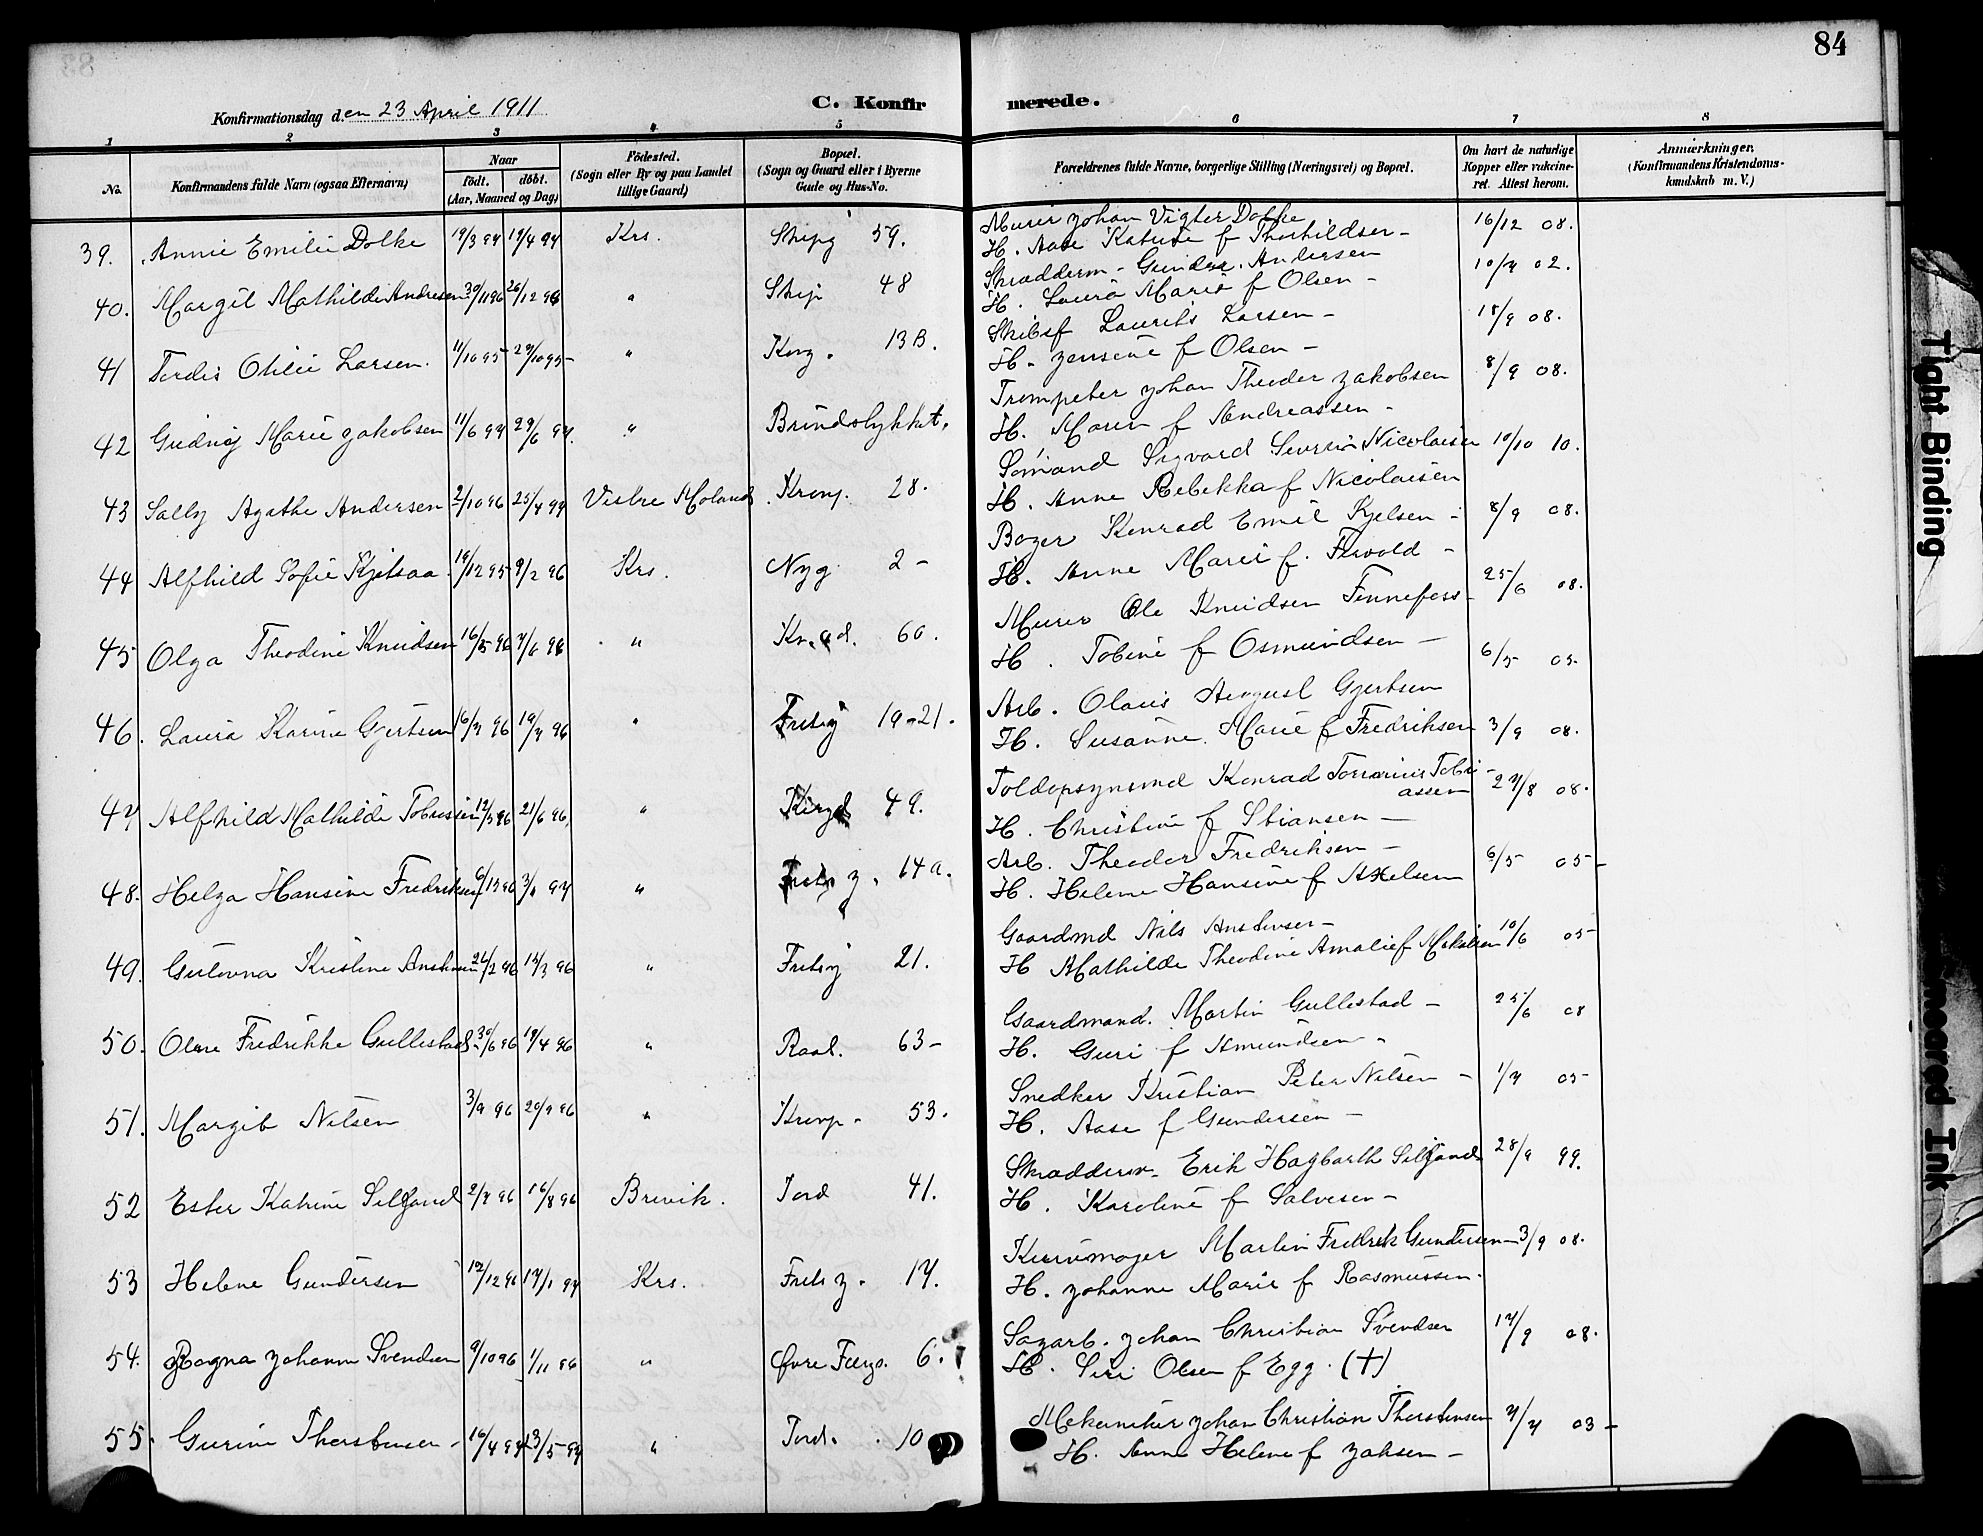 84
Konfirmationsdag den 23 April 1911
C. Konfirmerede.
1 2 3 4 5 6 7 8
No. Konfirmandens fulde Navn (ogsaa Efternavn) Naar Födt. döbt. (Aar, Maaned og Dag) Födested. (Sogn eller By og paa Landet tillige Gaard) Bopæl. (Sogn og Gaard eller i Byerne Gade og Hus-No. Forældrenes fulde Navne, borgerlige Stilling (Næringsvei) og Bopæl. Om havt de naturlige Kopper eller vakcineret. Attest herom. Anmærkninger. (Konfirmandens Kristendomskundskab m. V.)
39. Annie Emilie Dolke 19/3 97 19/4 97 Krs. 59. Murer Johan Vigter Dolke 16/12 08.
H. Aase Katrine f Thorkildsen
40. Margit Mathilde Andresen 30/11 96 26/12 96 " Skip 48 Skradderm - Gunder. Andersen 10/7 02.
H. Laura Marie f Olsen -
41 Tordis Otilie Larsen. 11/10 95 29/10 95 " Kong. 13 B. Skibsf Laurits Larsen - 18/9 08.
H. Jensine f Olsen -
42 Gudny Marie Jakobsen 11/6 97 29/6 97. " Bundslykket. Trompeter Johan Theodor Jakobsen 8/9 08.
H. Maren f Andreassen -
43 Sally Agathe Andersen 2/10 96 25/4 97 Vestre Moland Kronp. 28. Sømand Sigvard Severin Nicolaisen 10/10 10.
H. Anne Rebekka f Nicolaisen
44 Alfhild Sofie Kjetsaa 19/12 95 9/2 96 Krs. Nyg 2 - Konrad Emil 8/9 08.
H. Anne Marie f.
45 Olga Theodine Knudsen 16/5 96 7/6 96 " 60. Murer Ole Knudsen Finnefoss 25/6 08.
H. Tobine f Osmundsen -
46. Laura Karine Gjertsen 16/3 96 19/7 96 " 19-21. Arb. Olaus August Gjertsen 6/5 05.
H. Susanne Marie f Fredriksen 3/9 08.
47 Alfhild Mathilde Tobiassen 12/5 96 21/6 96, " 49. Toldopsynsmd Konrad Tobiassen 27/8 08.
H. Christine f Stiansen -
48. Helga Hansine Fredriksen 6/12 96 3/1 97 " 14 a. Arb. Theodor Fredriksen - 6/5 05 -
H. Helene Hansine f Axelsen
49. Gustovna Kristine 24/2 96 15/3 96 " 21. Gaardmd Nils 10/6 05
H Mathilde Theodine Amalie f
50. Oline Fredrikke Gullestad 19/4 96 " Raal. 63 - Gaardmand. Martin Gullestad - 25/6 08
H. Guri f Amundsen -
51. Margit Nilsen 3/9 96 20/9 96 " Kronp. 53. Snedker Kristian Peter Nilsen - 1/7 05
H. Aase f Gundersen -
52 Ester Katrine Siljand 2/7 96 16/8 96 Brevik. Tord 41. Skradderm Erik Hagbarth Siljand 28/9 99.
H. Karoline f Salvesen -
53 Helene Gundersen 12/12 96 17/1 97 Krs. 17. Kurvmager Martin Fredrik Gundersen - 3/9 08.
H. Johanne Marie f Rasmussen.
54. Ragna Johanne Svendsen 9/10 96 1/11 96 " Øvre 6. Sagarb. Johan Christian Svendsen 17/9 08.
H. Siri Olsen f Egg. (†)
55. Gurine Thorstensen - 16/4 97 23/5 97 " Tord. 10 Mekaniker Johan Christian Thorstensen 7/7 03 -
H. Anne Helene f Jahsen -
Tight Binding
Smeared Ink